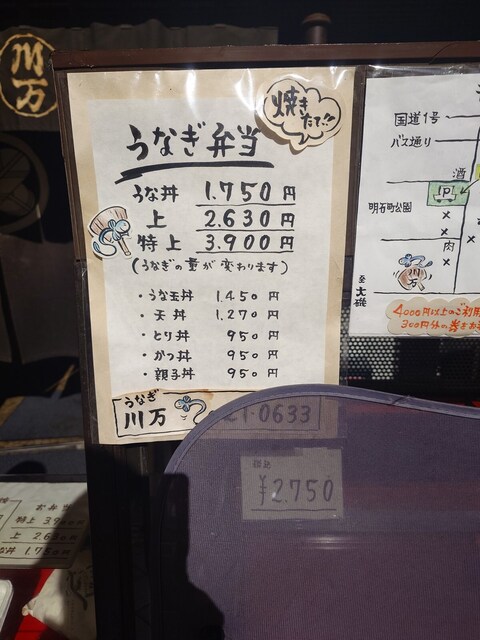 川万
焼きたて!!
うなぎ弁当
うな丼 1.750円
上 2.630円
特上 3.900円
(うなぎの量が変わります)
・うな玉丼 1.450円
・天丼 1.270円
・とり丼 950円
・かつ丼 950円
・親子丼 950円
うなぎ
川万
21-0633
¥2.750
国道1号
バス通り
酒
P
明石町公園
肉
川万
至大磯
4000円以上のご利用
300円分の券を
お弁当
特上 3.900円
上 2.63
な丼 1.75